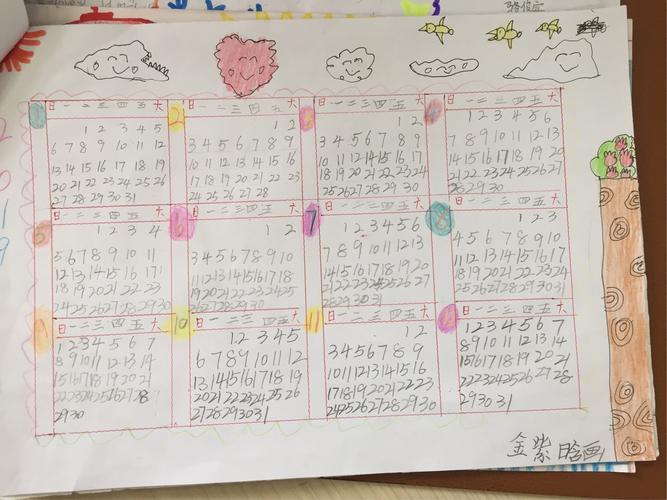 1
日 一 二 三 四 五 六
1 2 3 4 5
6 7 8 9 10 11 12
13 14 15 16 17 18 19
20 21 22 23 24 25 26
27 28 29 30 31
2
日 一 二 三 四 五 六
1 2
3 4 5 6 7 8 9
10 11 12 13 14 15 16
17 18 19 20 21 22 23
24 25 26 27 28
3
日 一 二 三 四 五 六
1 2
3 4 5 6 7 8 9
10 11 12 14 15 16 17
18 19 20 21 22 23 24
25 26 27 28 29 30
4
日 一 二 三 四 五 六
1 2 3 4 5 6
7 8 9 10 11 12 13
14 15 16 17 18 19 20
21 22 23 24 25 26 27
28 29 30
5
日 一 二 三 四 五 六
1 2 3 4
5 6 7 8 9 10 11
12 13 14 15 16 17
18 19 20 21 22 23
24 25 26 27 28 29 30
6
日 一 二 三 四 五 六
1 2
3 4 5 6 7 8 9 10
11 12 13 14 15 16 17 18
19 20 21 22 23 24 25
26 27 28 29 30
7
日 一 二 三 四 五 六
1 2 3 4 5 6
7 8 9 10 11 12 13
14 15 16 17 18 19 20
21 22 23 24 25 26 27
28 29 30 31
8
日 一 二 三 四 五 六
1 2 3
4 5 6 7 8 9 10
11 12 13 14 15 16 17
18 19 20 21 22 23 24
25 26 27 28 29 30 31
日 一 二 三 四 五 六
1 2 3 4 5 6 7
8 9 10 11 12 13 14
15 16 17 18 19 20 21
22 23 24 25 26 27 28
29 30
10
日 一 二 三 四 五 六
1 2 3 4 5
6 7 8 9 10 11 12
13 14 15 16 17 18 19
20 21 22 23 24 25 26
27 28 29 30 31
11
日 一 二 三 四 五 六
1 2
3 4 5 6 7 8 9
10 11 12 13 14 15 16
17 18 19 20 21 22 23
24 25 26 27 28 29 30
日 一 二 三 四 五 六
1 2 3 4 5 6 7
8 9 10 11 12 13 14
15 16 17 18 19 20 21
22 23 24 25 26 27 28
29 30 31
金紫晗画